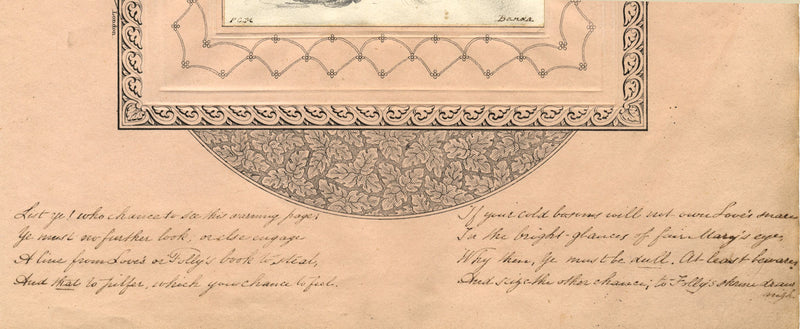 London.
P.C.H
Banda.
List ye! who chance to see this warning page;
Ye must no further look, or else engage
A line from Love's or Folly's book to steal,
And that to pilfer, which your chance to feel.
If your cold bosoms will not own Love's snare
In the bright glances of fair Mary's eye,
Why then, Ye must be dull. At least beware,
And seize the other chance; to Folly's shrine draw
nigh.